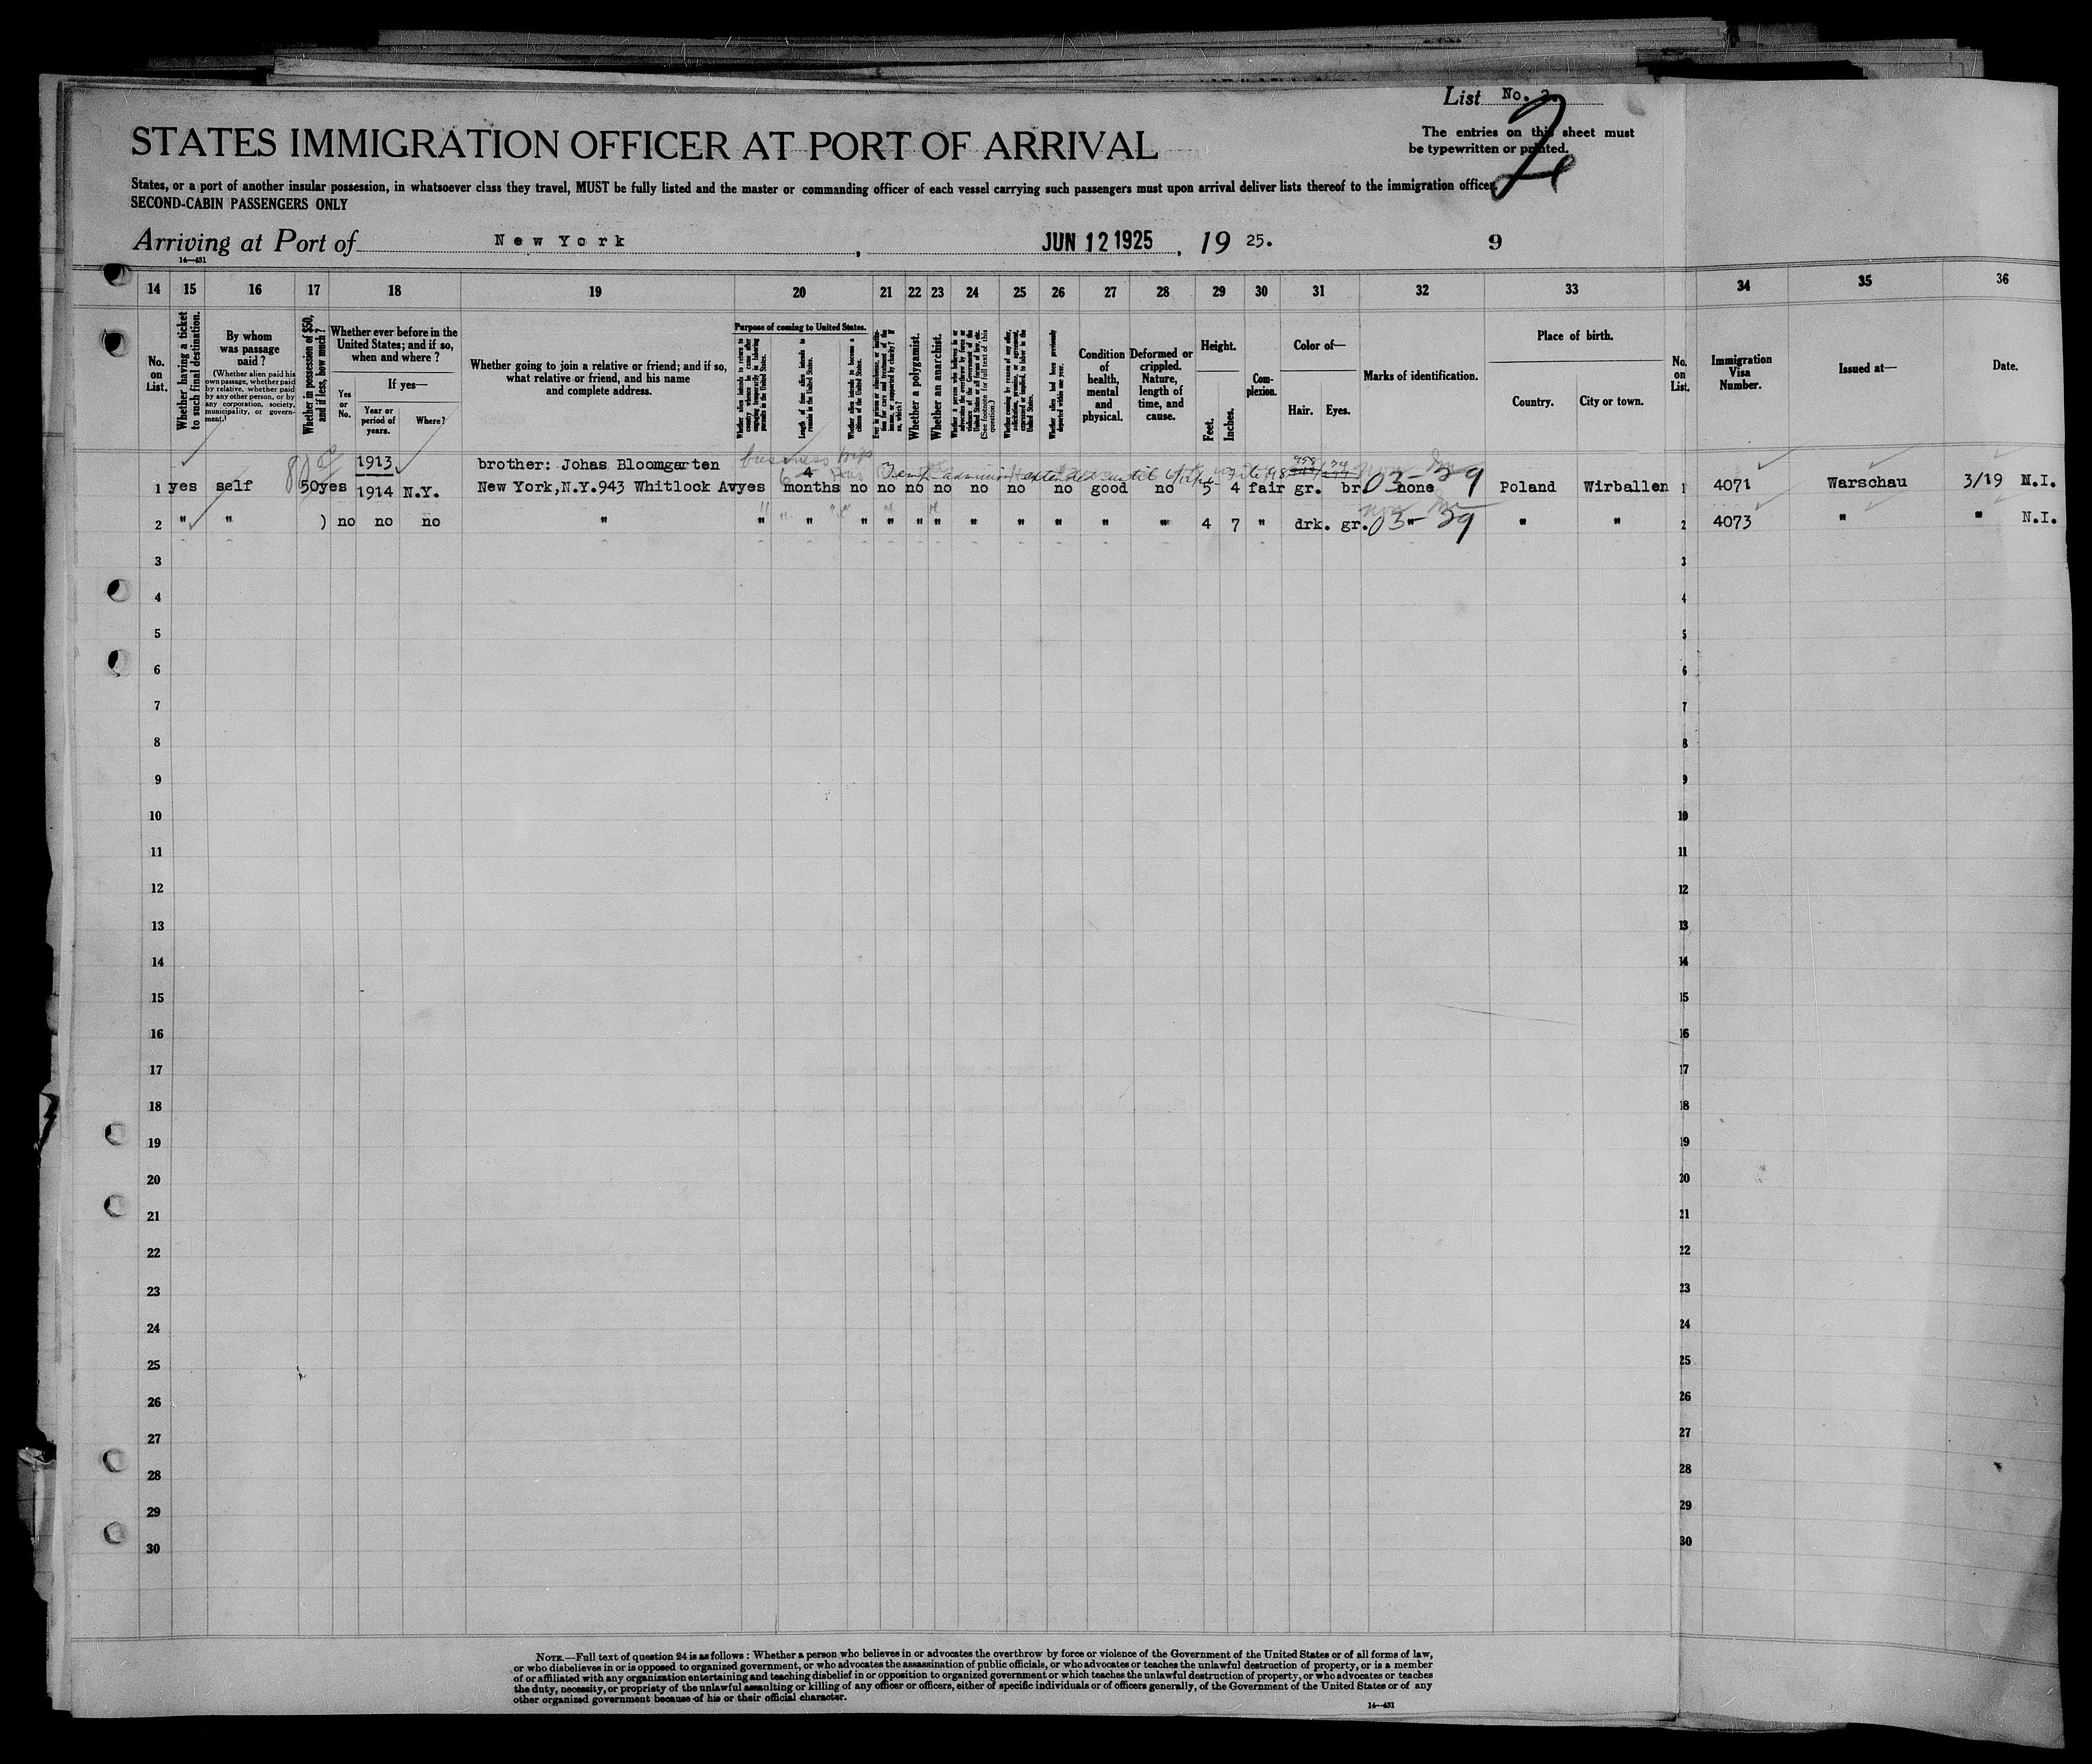 List No. 2.
2
STATES IMMIGRATION OFFICER AT PORT OF ARRIVAL
The entries on this sheet must
be typewritten or printed.
States, or a port of another insular possession, in whatsoever class they travel, MUST be fully listed and the master or commanding officer of each vessel carrying such passengers must upon arrival deliver lists thereof to the immigration officer.
SECOND-CABIN PASSENGERS ONLY
Arriving at Port of New York, JUN 12 1925, 19 25. 9
14—431
14 15 16 17 18 19 20 21 22 23 24 25 26 27 28 29 30 31 32 33 34 35 36
No. on List.
Whether having a ticket to such final destination.
By whom was passage paid?
(Whether alien paid his own passage, whether paid by relative, whether paid by any other person, or by any corporation, society, municipality, or government.)
Whether in possession of $50, and if less, how much?
Whether ever before in the United States; and if so, when and where?
Yes or No.
If yes—
Year or period of years.
Where?
Whether going to join a relative or friend; and if so, what relative or friend, and his name and complete address.
Purpose of coming to United States.
Whether alien intends to return to country whence he came after engaging temporarily in laboring pursuits in the United States.
Length of time alien intends to remain in the United States.
Whether alien intends to become a citizen of the United States.
Ever in prison or almshouse, or institution for care and treatment of the insane, or supported by charity? If so, which?
Whether a polygamist.
Whether an anarchist.
Whether a person who believes in or advocates the overthrow by force or violence of the Government of the United States or all forms of law, etc. (See footnote for full text of this question.)
Whether coming by reason of any offer, solicitation, promise, or agreement, expressed or implied, to labor in the United States.
Whether alien had been previously deported within one year.
Condition of health, mental and physical.
Deformed or crippled. Nature, length of time, and cause.
Height.
Feet. Inches.
Complexion.
Color of—
Hair. Eyes.
Marks of identification.
Place of birth.
Country. City or town.
No. on List.
Immigration Visa Number.
Issued at—
Date.
1913 brother: Johas Bloomgarten business trip
Temp. admission extended until
1 yes self 50 yes 1914 N.Y. New York,N.Y.943 Whitlock Av yes 4 months no no no no no no no good no 5 4 fair gr. br. none 03-29 Poland Wirballen 1 4071 Warschau 3/19 N.I.
2 " " ) no no no " " " " " " " " " " " " 4 7 " drk. gr. " 03-29 " " 2 4073 " " N.I.
3 3
4 4
5 5
6 6
7 7
8 8
9 9
10 10
11 11
12 12
13 13
14 14
15 15
16 16
17 17
18 18
19 19
20 20
21 21
22 22
23 23
24 24
25 25
26 26
27 27
28 28
29 29
30 30
NOTE.—Full text of question 24 is as follows: Whether a person who believes in or advocates the overthrow by force or violence of the Government of the United States or of all forms of law,
or who disbelieves in or is opposed to organized government, or who advocates the assassination of public officials, or who advocates or teaches the unlawful destruction of property, or is a member
of or affiliated with any organization entertaining and teaching disbelief in or opposition to organized government or which teaches the unlawful destruction of property, or who advocates or teaches
the duty, necessity, or propriety of the unlawful assaulting or killing of any officer or officers, either of specific individuals or of officers generally, of the Government of the United States or of any
other organized government because of his or their official character.
14—431